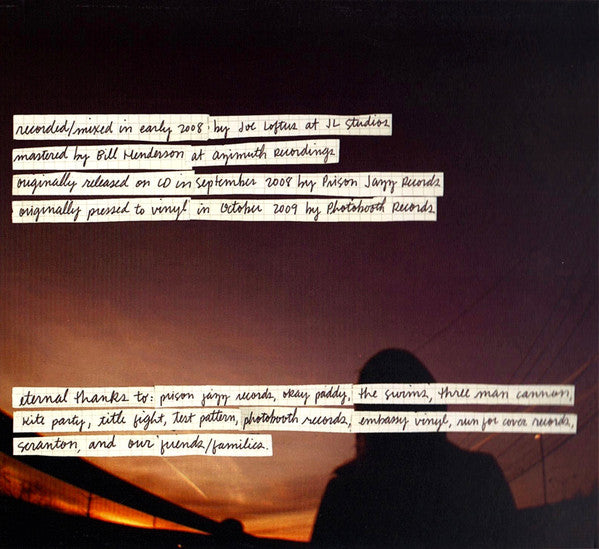 recorded/mixed in early 2008 by Joe Loftus at JL Studios
mastered by Bill Henderson at azimuth Recordings
originally released on CD in September 2008 by Prison Jazz Records
originally pressed to vinyl in October 2009 by Photobooth Records
eternal thanks to: prison jazz records, okay paddy, the swims, three man cannon,
kite party, title fight, test pattern, photobooth records, embassy vinyl, run for cover records,
scranton, and our friends/families.